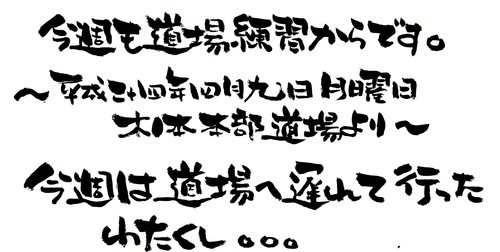 今週も道場練習からです。
～平成二十四年四月九日月曜日
木本本部道場より～
今週は道場へ遅れて行った
わたくし。。。